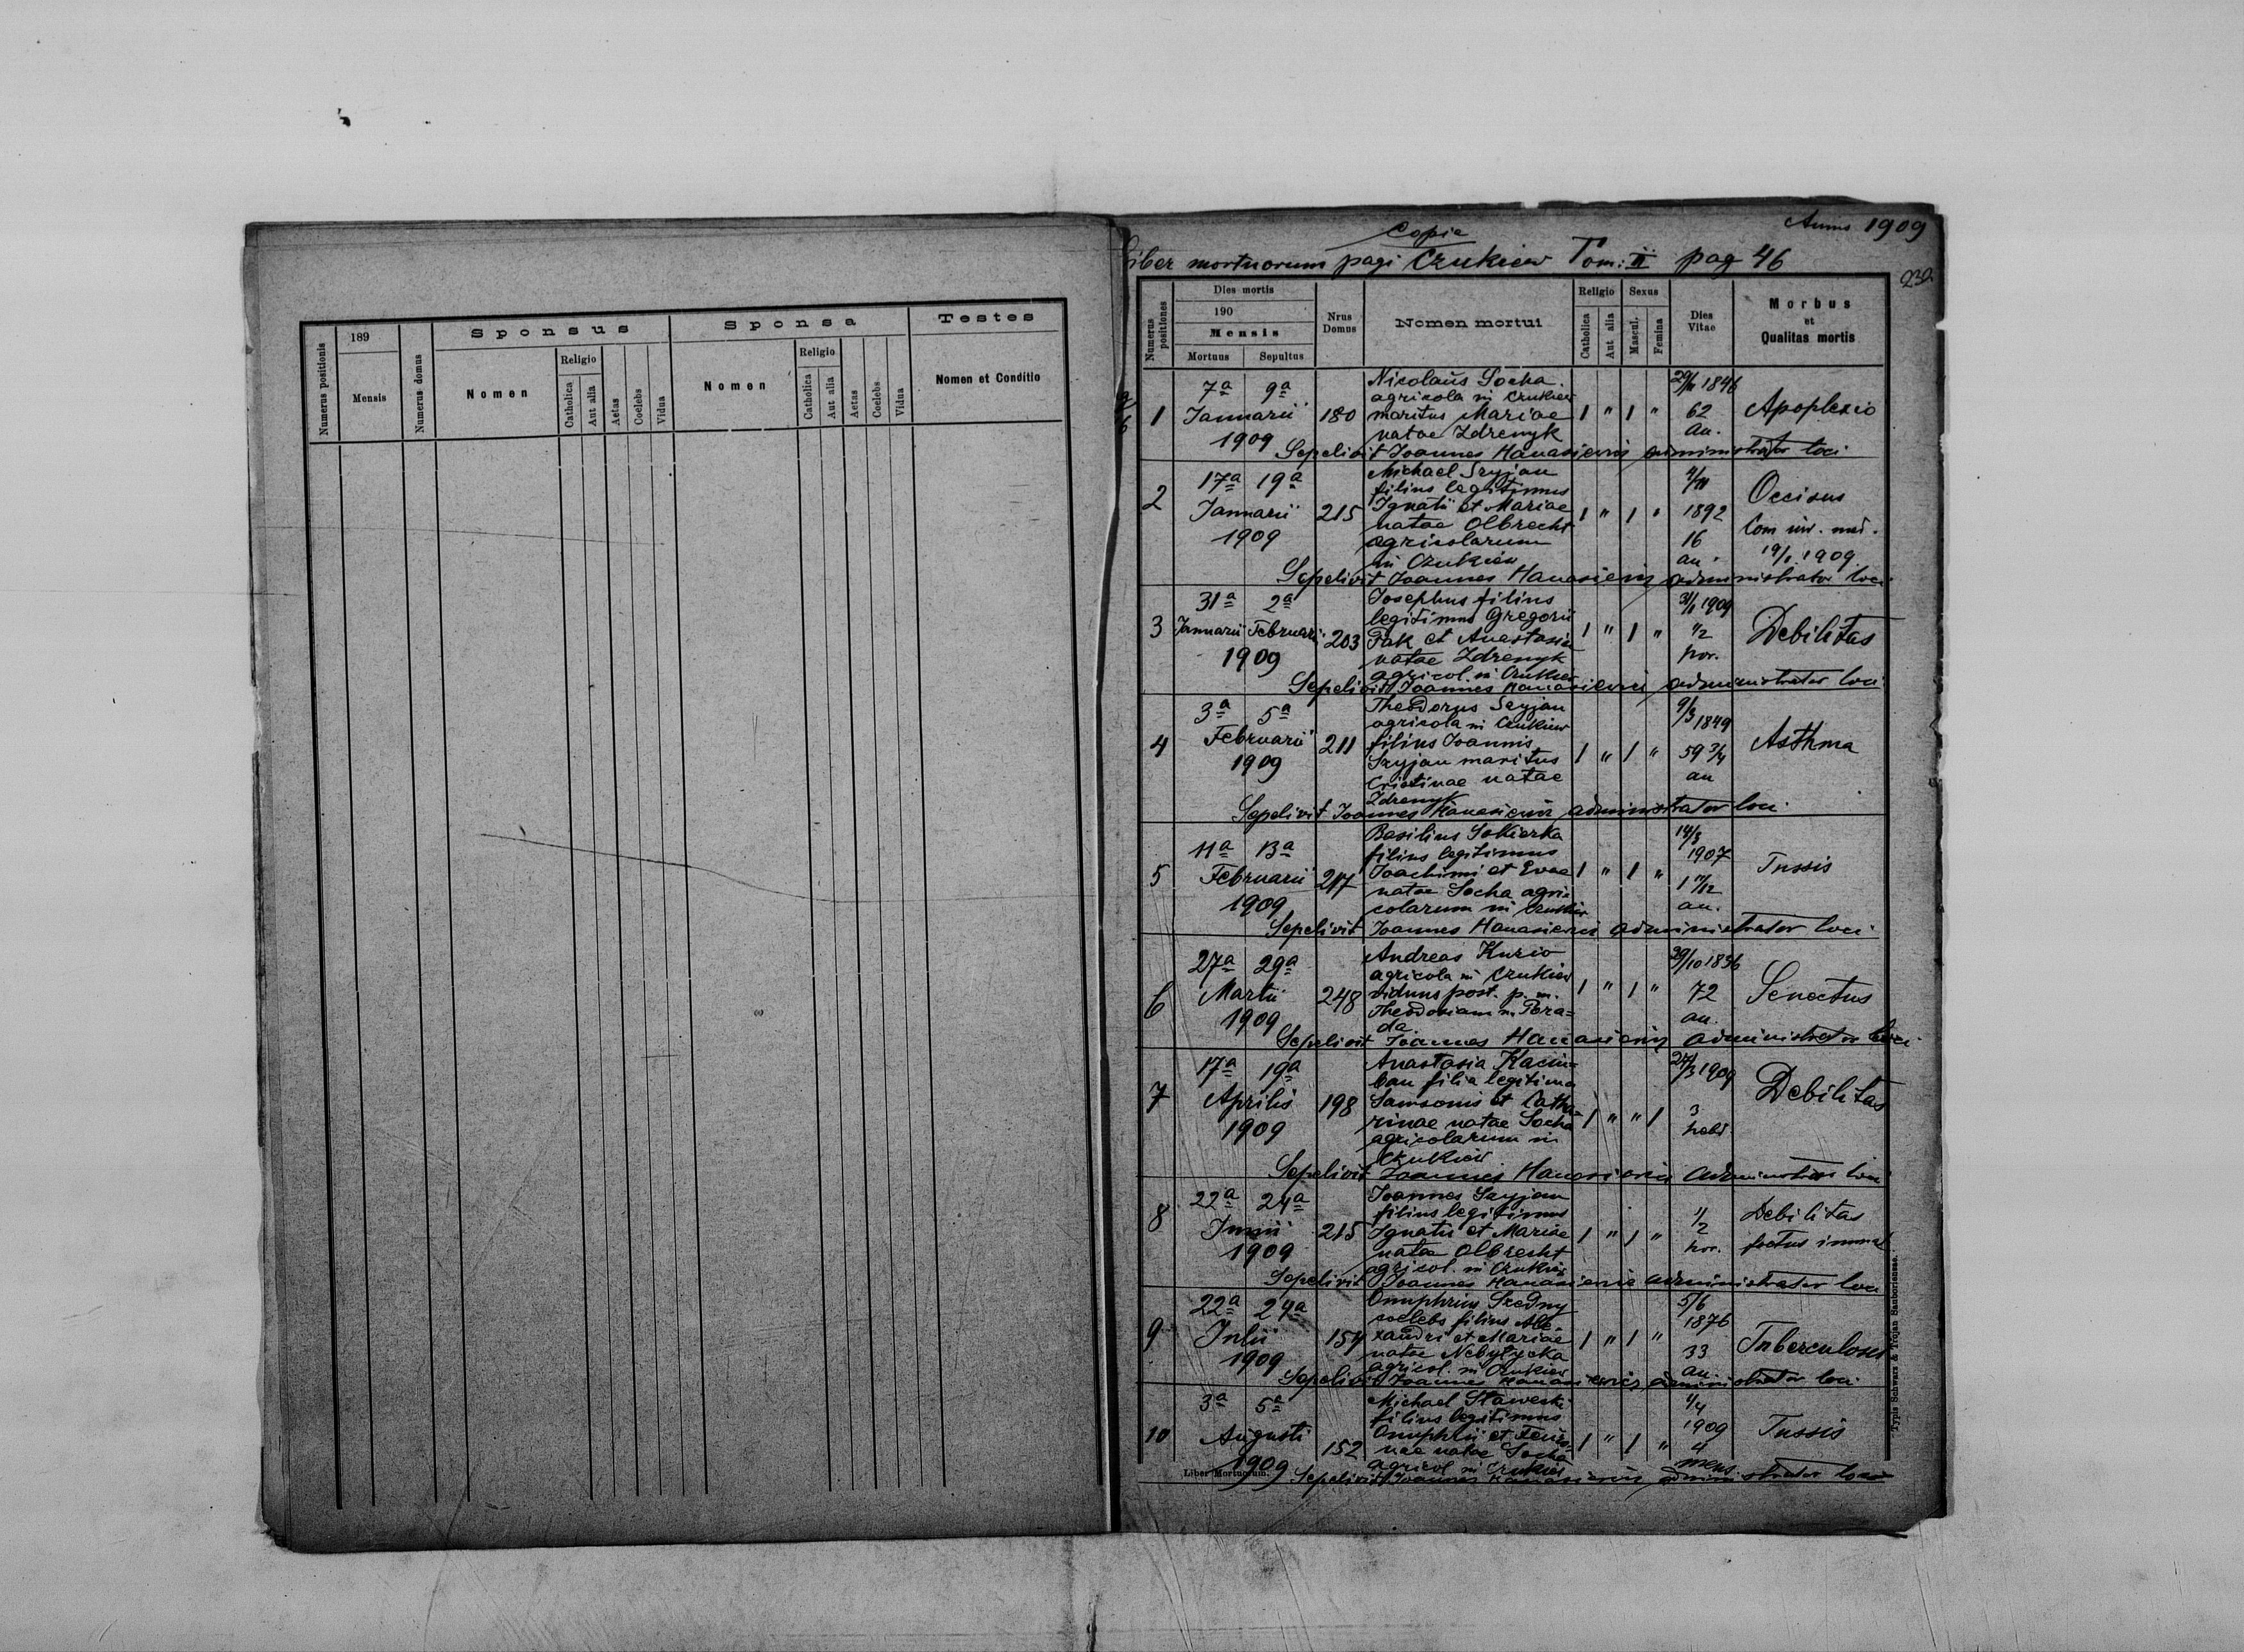 189
Numerus positionis
Mensis
Numerus domus
Sponsus
Nomen
Religio
Catholica
Aut alia
Aetas
Coelebs
Vidua
Sponsa
Nomen
Religio
Catholica
Aut alia
Aetas
Coelebs
Vidua
Testes
Nomen et Conditio
Copia
Annus 1909
Liber mortuorum pagi Czukiew Tom: II pag 46
232.
Numerus positiones
Dies mortis
190
Mensis
Mortuus Sepultus
Nrus Domus
Nomen mortui
Religio
Catholica
Aut alia
Sexus
Mascul.
Femina
Dies Vitae
Morbus
et
Qualitas mortis
1
7a 9a
Januarii
1909
180
Nicolaus Socha
agricola in Czukiew
maritus Mariae
natae Zdrenyk
1 " 1 "
29/11 1846
62
an.
Apoplexio
Sepelivit Joannes Hanasiewicz administrator loci
2
17a 19a
Januarii
1909
215
Michael Szyjan
filius legitimus
Ignatii et Mariae
natae Olbrecht
agricolarum
in Czukiew
1 " 1 "
4/11
1892
16
an.
Occisus
19/1 1909
Sepelivit Joannes Hanasiewicz administrator loci
3
31a 2a
Januarii Februarii
1909
203
Josephus filius
legitimus Gregorii
Pak et Anastasiae
natae Zdrenyk
agricol. in Czukiew
1 " 1 "
31/1 1909
1/2
hor.
Debilitas
Sepelivit Joannes Hanasiewicz administrator loci
4
3a 5a
Februarii
1909
211
Theodorus Szyjan
agricola in Czukiew
filius Joannis
Szyjan maritus
Cristinae natae
Zdrenyk
1 " 1 "
9/3 1849
59 3/4
an
Asthma
Sepelivit Joannes Hanasiewicz administrator loci
5
11a 13a
Februarii
1909
217
Basilius Sokierka
filius legitimus
Joachimi et Evae
natae Socha agri=
colarum in Czukiew
1 " 1 "
14/3
1907
1 11/12
an.
Tussis
Sepelivit Joannes Hanasiewicz administrator loci
6
27a 29a
Martii
1909
248
Andreas Kurio
agricola in Czukiew
viduus post. p. m.
Theodosiam n. Pora=
da.
1 " 1 "
/10 1836
72
an.
Senectus
Sepelivit Joannes Hanasiewicz administrator loci
7
17a 19a
Aprilis
1909
198
Anastasia Kacin=
ban filia legitima
Samsonis et Catha=
rinae natae Socha
agricolarum in
Czukiew
1 " " 1
27/3 1909
3
hebd.
Debilitas
Sepelivit Joannes Hanasiewicz administrator loci
8
22a 24a
Junii
1909
215
Joannes Szyjan
filius legitimus
Ignatii et Mariae
natae Olbrecht
agricol. in Czukiew
1 " 1 "
1/2
hor.
Debilitas
foetus immat
Sepelivit Joannes Hanasiewicz administrator loci
9
22a 24a
Julii
1909
154
Onuphrius Szedny
coelebs filius Ale=
xandri et Mariae
natae Nebylycka
agricol. in Czukiew
1 " 1 "
5/6
1876
33
an.
Tuberculosis
Sepelivit Joannes Hanasiewicz administrator loci
10
3a 5a
Augusti
1909
152
Michael Stawecki
filius legitimus
Onuphrii et
natae Socha
agricol in Czukiew
1 " 1 "
1/4
1909
4
mens.
Tussis
Liber Mortuorum.
Sepelivit Joannes Hanasiewicz administrator loci
Typis Schwarz & Trojan Samboriensae.